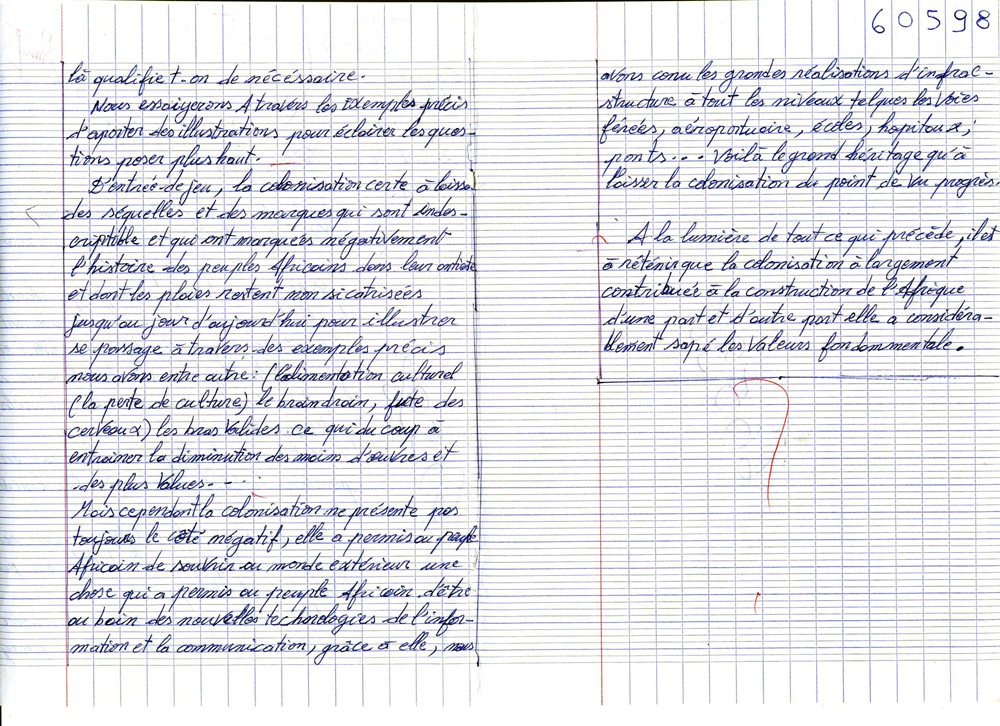 60598
là qualifie t-on de nécéssaire.
Nous essaiyerons A travers les Exemples précis
d'aporter des illustrations pour éclairer les ques-
tions poser plus haut.
D'entrée de jeu, la colonisation certe à laisse
des séquelles et des marques qui sont indes-
criptible et qui ont marquées négativement
l'histoire des peuples Africains dans leur
et dont les plaies restent non sicatrisées
jusqu'au jour d'aujourd'hui pour illustrer
se passage à travers des exemples précis
nous avons entre autre: ( culturel
(la perte de culture) le braindrain, fuite des
cerveaux) les bras Valides ce qui du coup à
entrainer la diminution des mains d'œuvres et
des plus Values...
Mais cependant la colonisation ne présente pas
toujours le côté négatif, elle a permis au peuple
Africain de souvrir au monde extérieur une
chose qui a permis au peuple Africain d'être
au bain des nouvelles technologies de l'infor-
mation et la communication, grâce à elle, nous
avons conu les grandes réalisations d'infrac-
structure à tout les niveaux telques les Voies
férées, aéroportuaire, écoles, hopitaux,
ponts... Voilà le grand héritage qu'à
laisser la colonisation du point de Vu progrès.
A la lumière de tout ce qui précède, il est
à réténir que la colonisation à largement
contribuée à la construction de l'Afrique
d'une part et d'autre part elle a considéra-
blement sapé les Valeurs fondammentale.
?